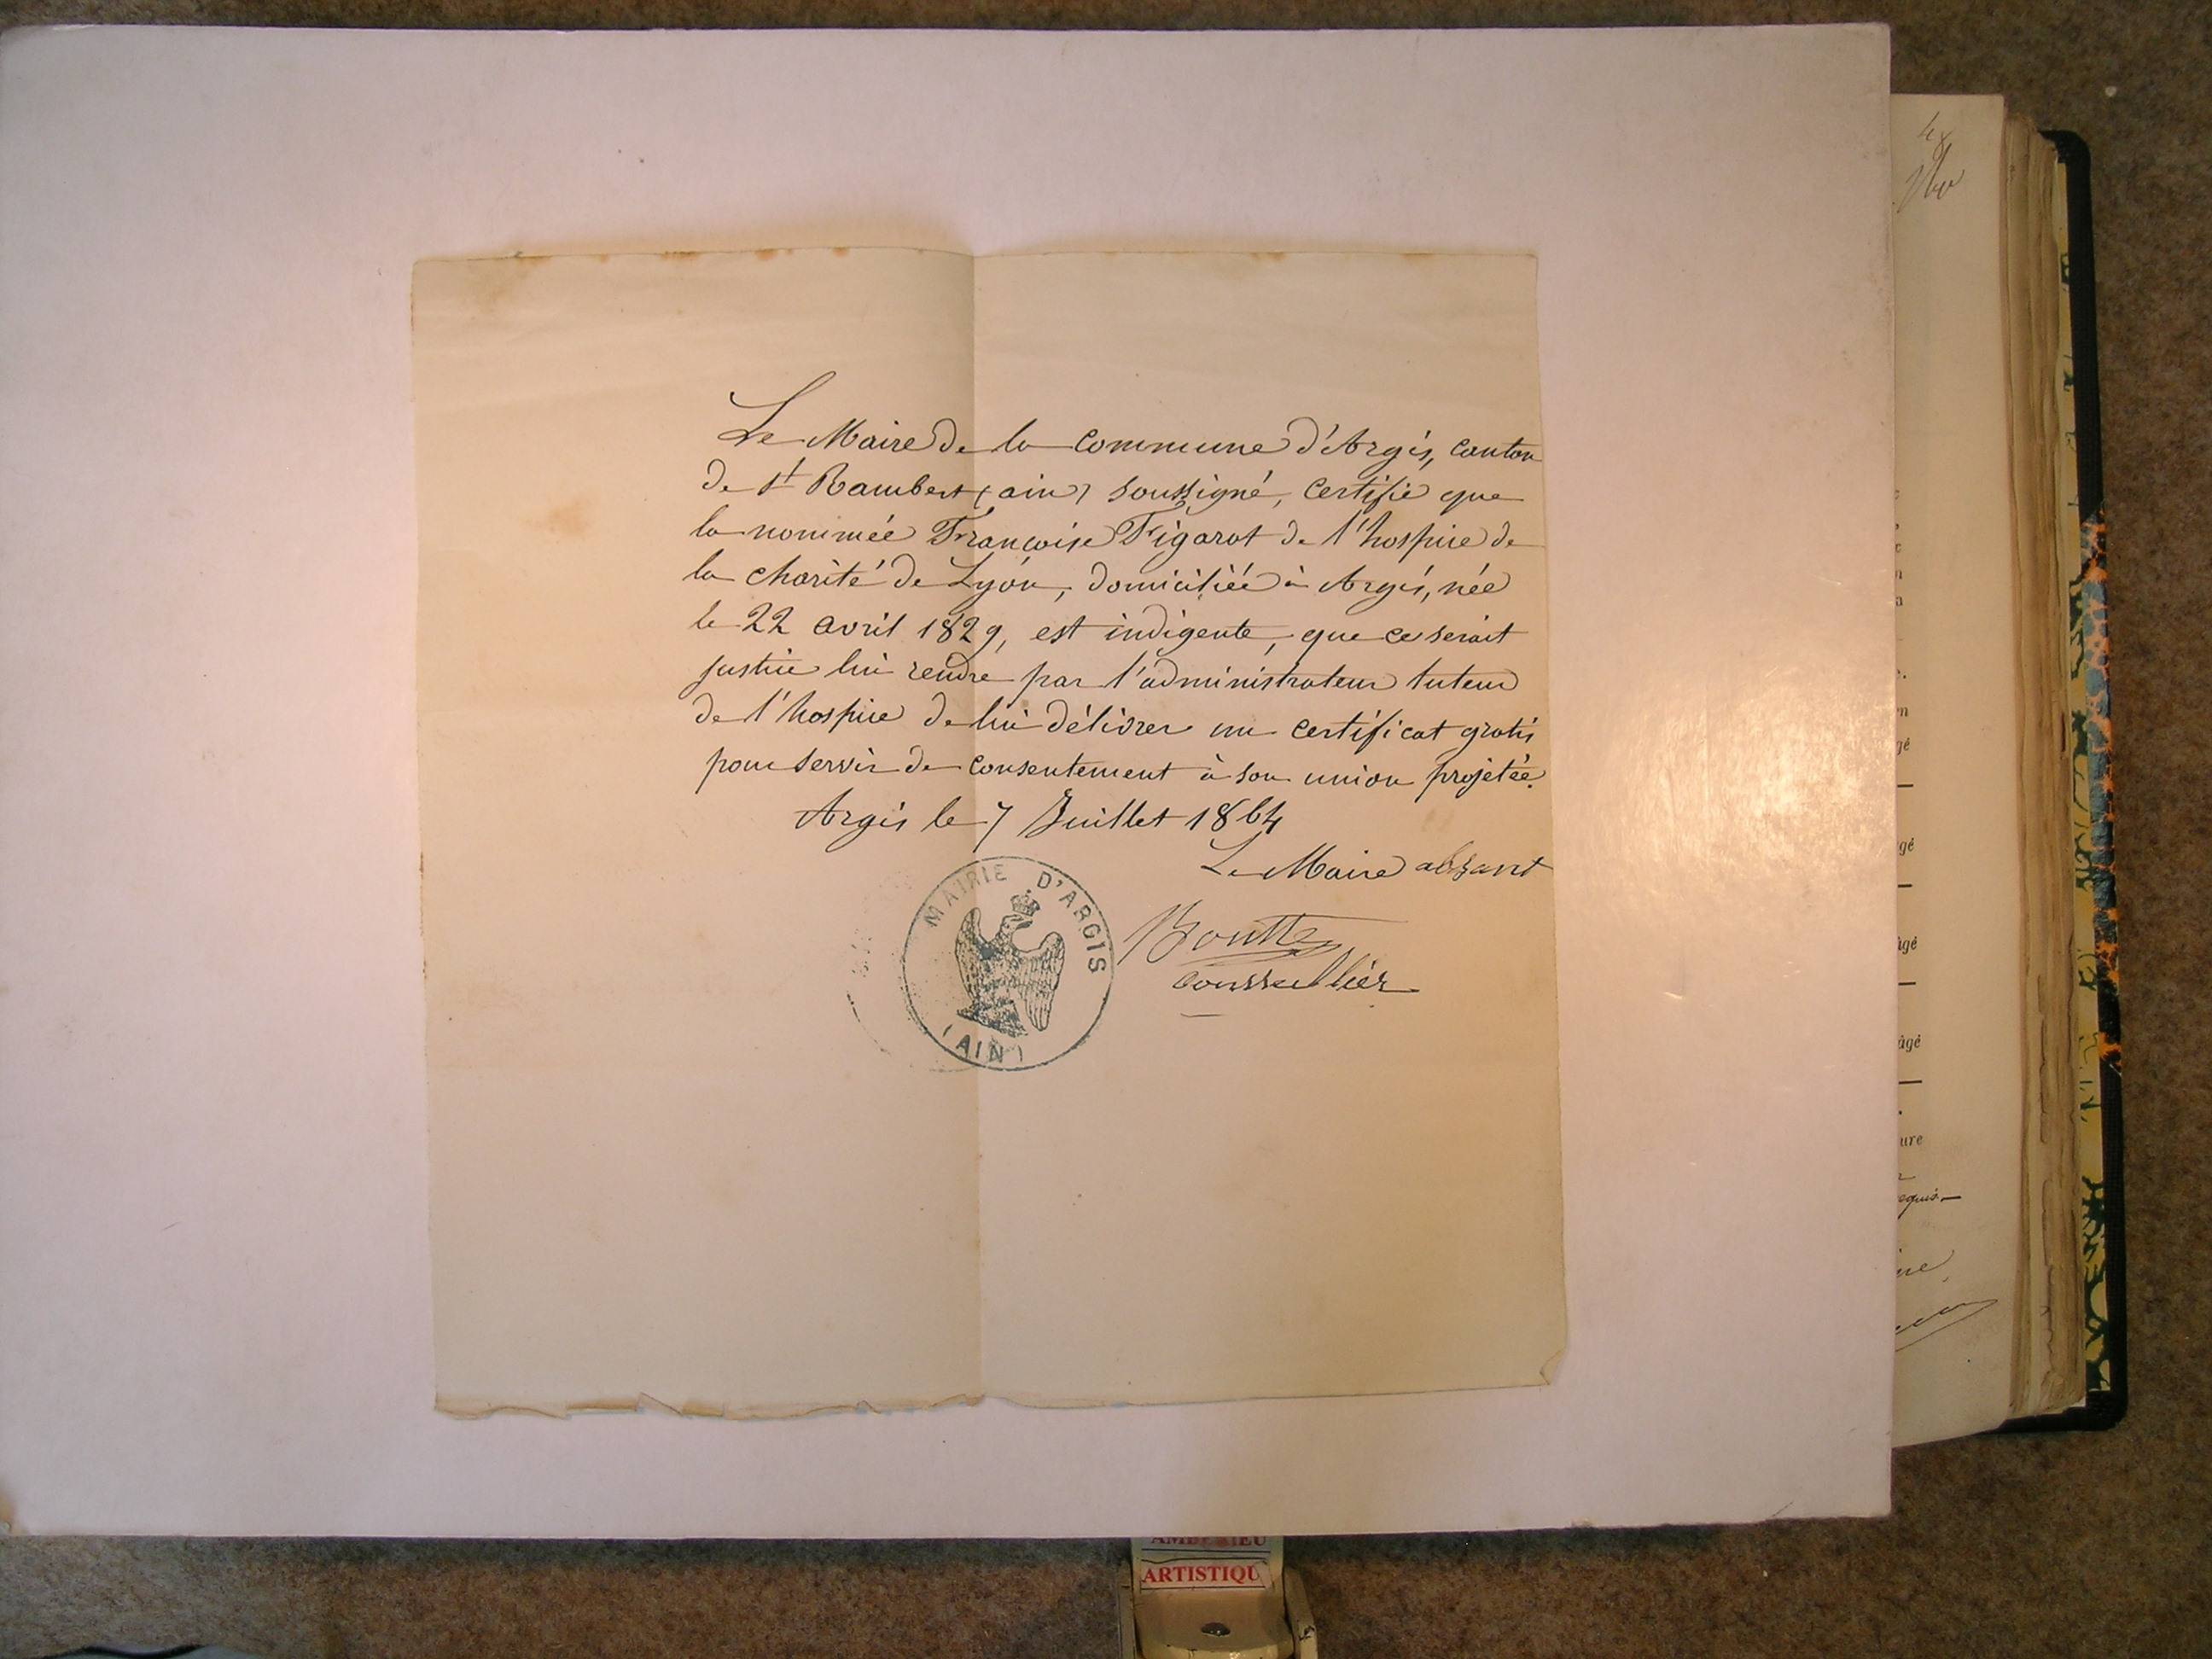 Le Maire de la commune d'Argis, canton
de St Rambert (ain) soussigné, certifie que
la nommée Françoise Figarot de l'hospice de
la charité de Lyon, domiciliée à Argis, née
le 22 avril 1829, est indigente, que ce serait
justice lui rendre par l'administrateur tuteur
de l'hospice de lui délivrer un certificat gratis
pour servir de consentement à son union projetée.
Argis le 7 Juillet 1864
Le Maire absant
MAIRIE D'ARGIS
(AIN)
conseillier
gé
gé
âgé
âgé
ure
AMBERIEU
ARTISTIQU